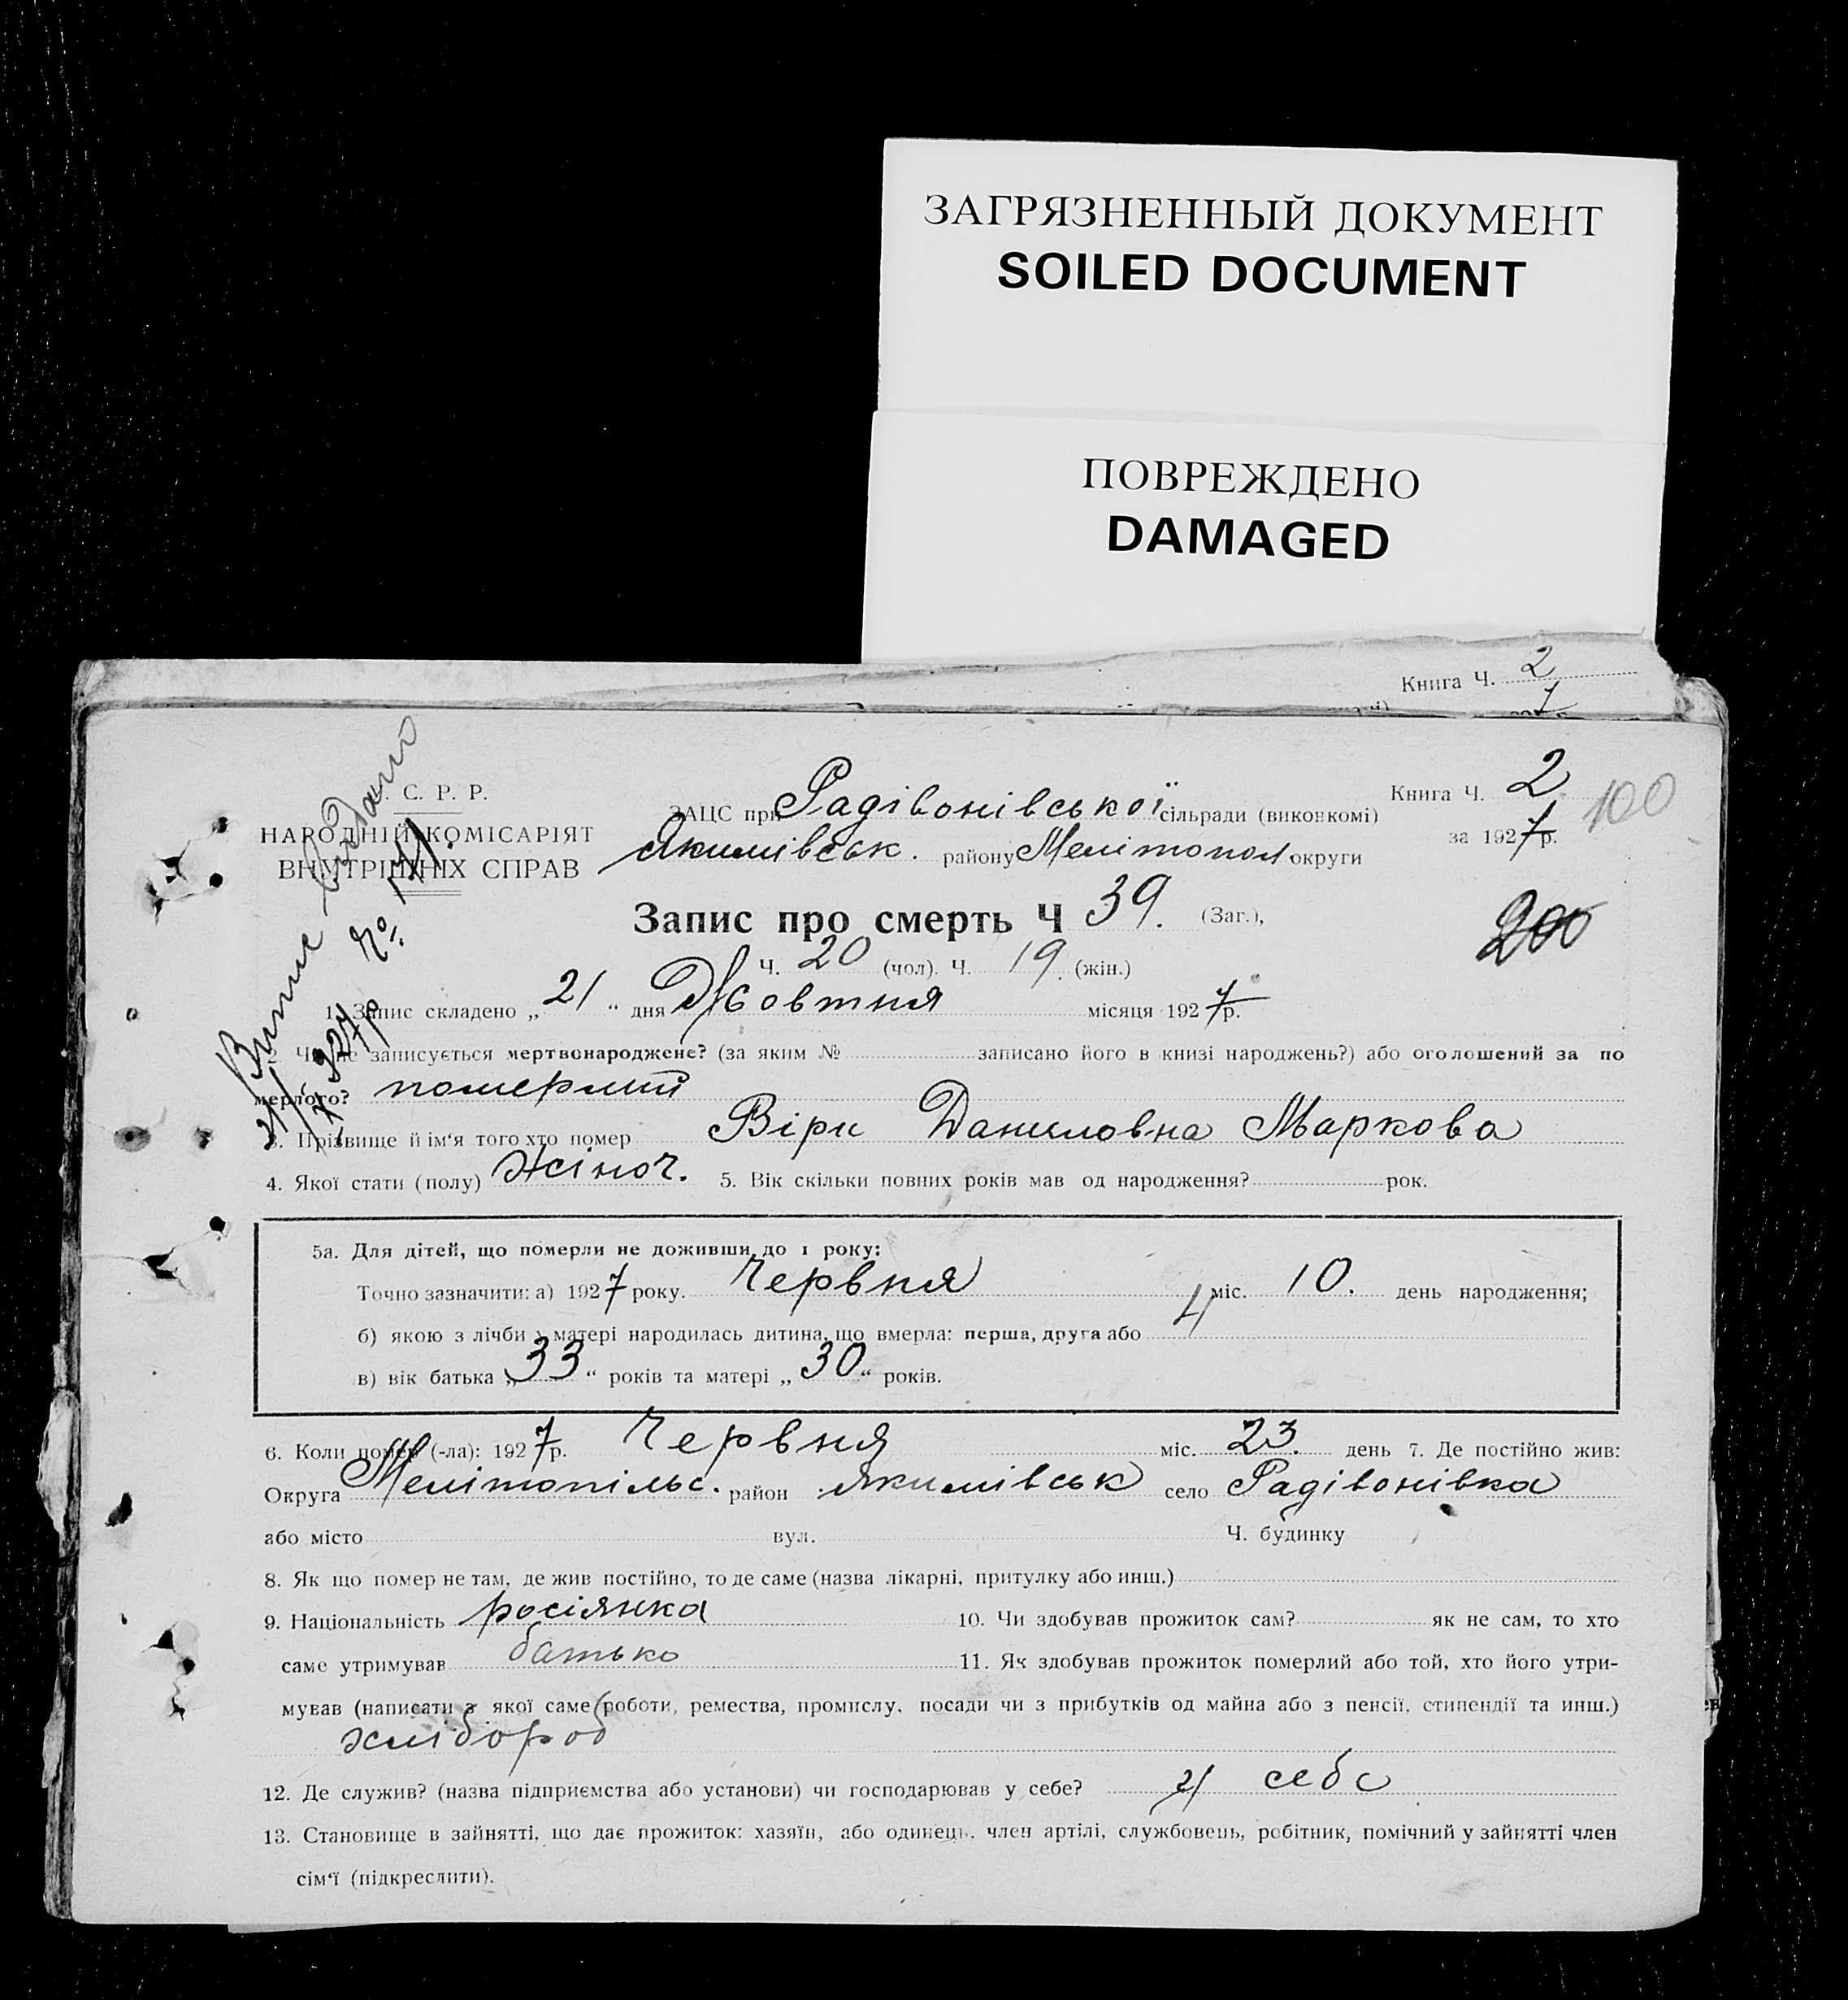 ЗАГРЯЗНЕННЫЙ ДОКУМЕНТ
SOILED DOCUMENT
ПОВРЕЖДЕНО
DAMAGED
Книга Ч. 2
С. Р. Р.
НАРОДНІЙ КОМІСАРІЯТ
ВНУТРІШНІХ СПРАВ
Випис видано
№ 171.
ЗАЦС при Радівонівської сільради (виконкомі)
Якимівськ. району Мелітопол округи
Книга Ч. 2
за 1927 р.
100
200
Запис про смерть Ч 39. (Заг.),
Ч. 20 (чол). Ч. 19. (жін.)
1. Запис складено „ 21 “ дня Жовтня місяця 1927 р.
Чи не записується мертвонароджене? (за яким № записано його в книзі народжень?) або оголошений за по
мерлого? померлий
3. Прізвище й ім‘я того хто помер Віри Даниловна Маркова
4. Якої стати (полу) жіноч. 5. Вік скільки повних років мав од народження? рок.
5а. Для дітей, що померли не доживши до 1 року:
Точно зазначити: а) 1927 року. Червня міс. 10. день народження;
б) якою з лічби у матері народилась дитина, що вмерла: перша, друга або 4
в) вік батька „ 33 “ років та матері „ 30 “ років.
6. Коли помер (-ла): 1927 р. Червня міс. 23. день 7. Де постійно жив:
Округа Мелітопільс. район Якимівськ село Радівонівка
або місто вул. Ч. будинку
8. Як що помер не там, де жив постійно, то де саме (назва лікарні, притулку або инш.)
9. Національність росіянка 10. Чи здобував прожиток сам? як не сам, то хто
саме утримував батько 11. Як здобував прожиток померлий або той, хто його утри-
мував (написати з якої саме роботи, ремества, промислу, посади чи з прибутків од майна або з пенсії, стипендії та инш.)
хлібороб
12. Де служив? (назва підприємства або установи) чи господарював у себе? у себе
13. Становище в зайнятті, що дає прожиток: хазяїн, або одинець, член артілі, службовець, робітник, помічний у зайнятті член
сім‘ї (підкреслити).